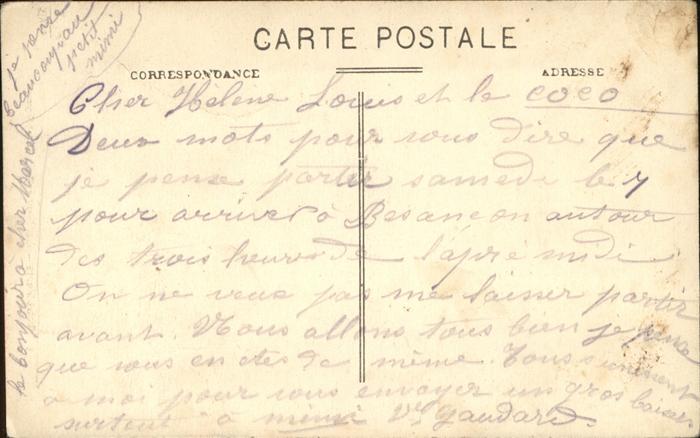 CARTE POSTALE
CORRESPONDANCE
ADRESSE
Cher Hélène Louis et le coco
Deux mots pour vous dire que
je pense partir samedi le 7
pour arriver à Besançon autour
des trois heures de l'aprè midi
On ne veux pas me laisser partir
avant. Nous allons tous bien je pense
que vous en etes de même. Tous s'unissent
a moi pour vous envoyer un gros baiser
surtout à mimi Vve Gaudard
le bonjour à cher Marcel
je pense
beaucoup au
petit
mimi